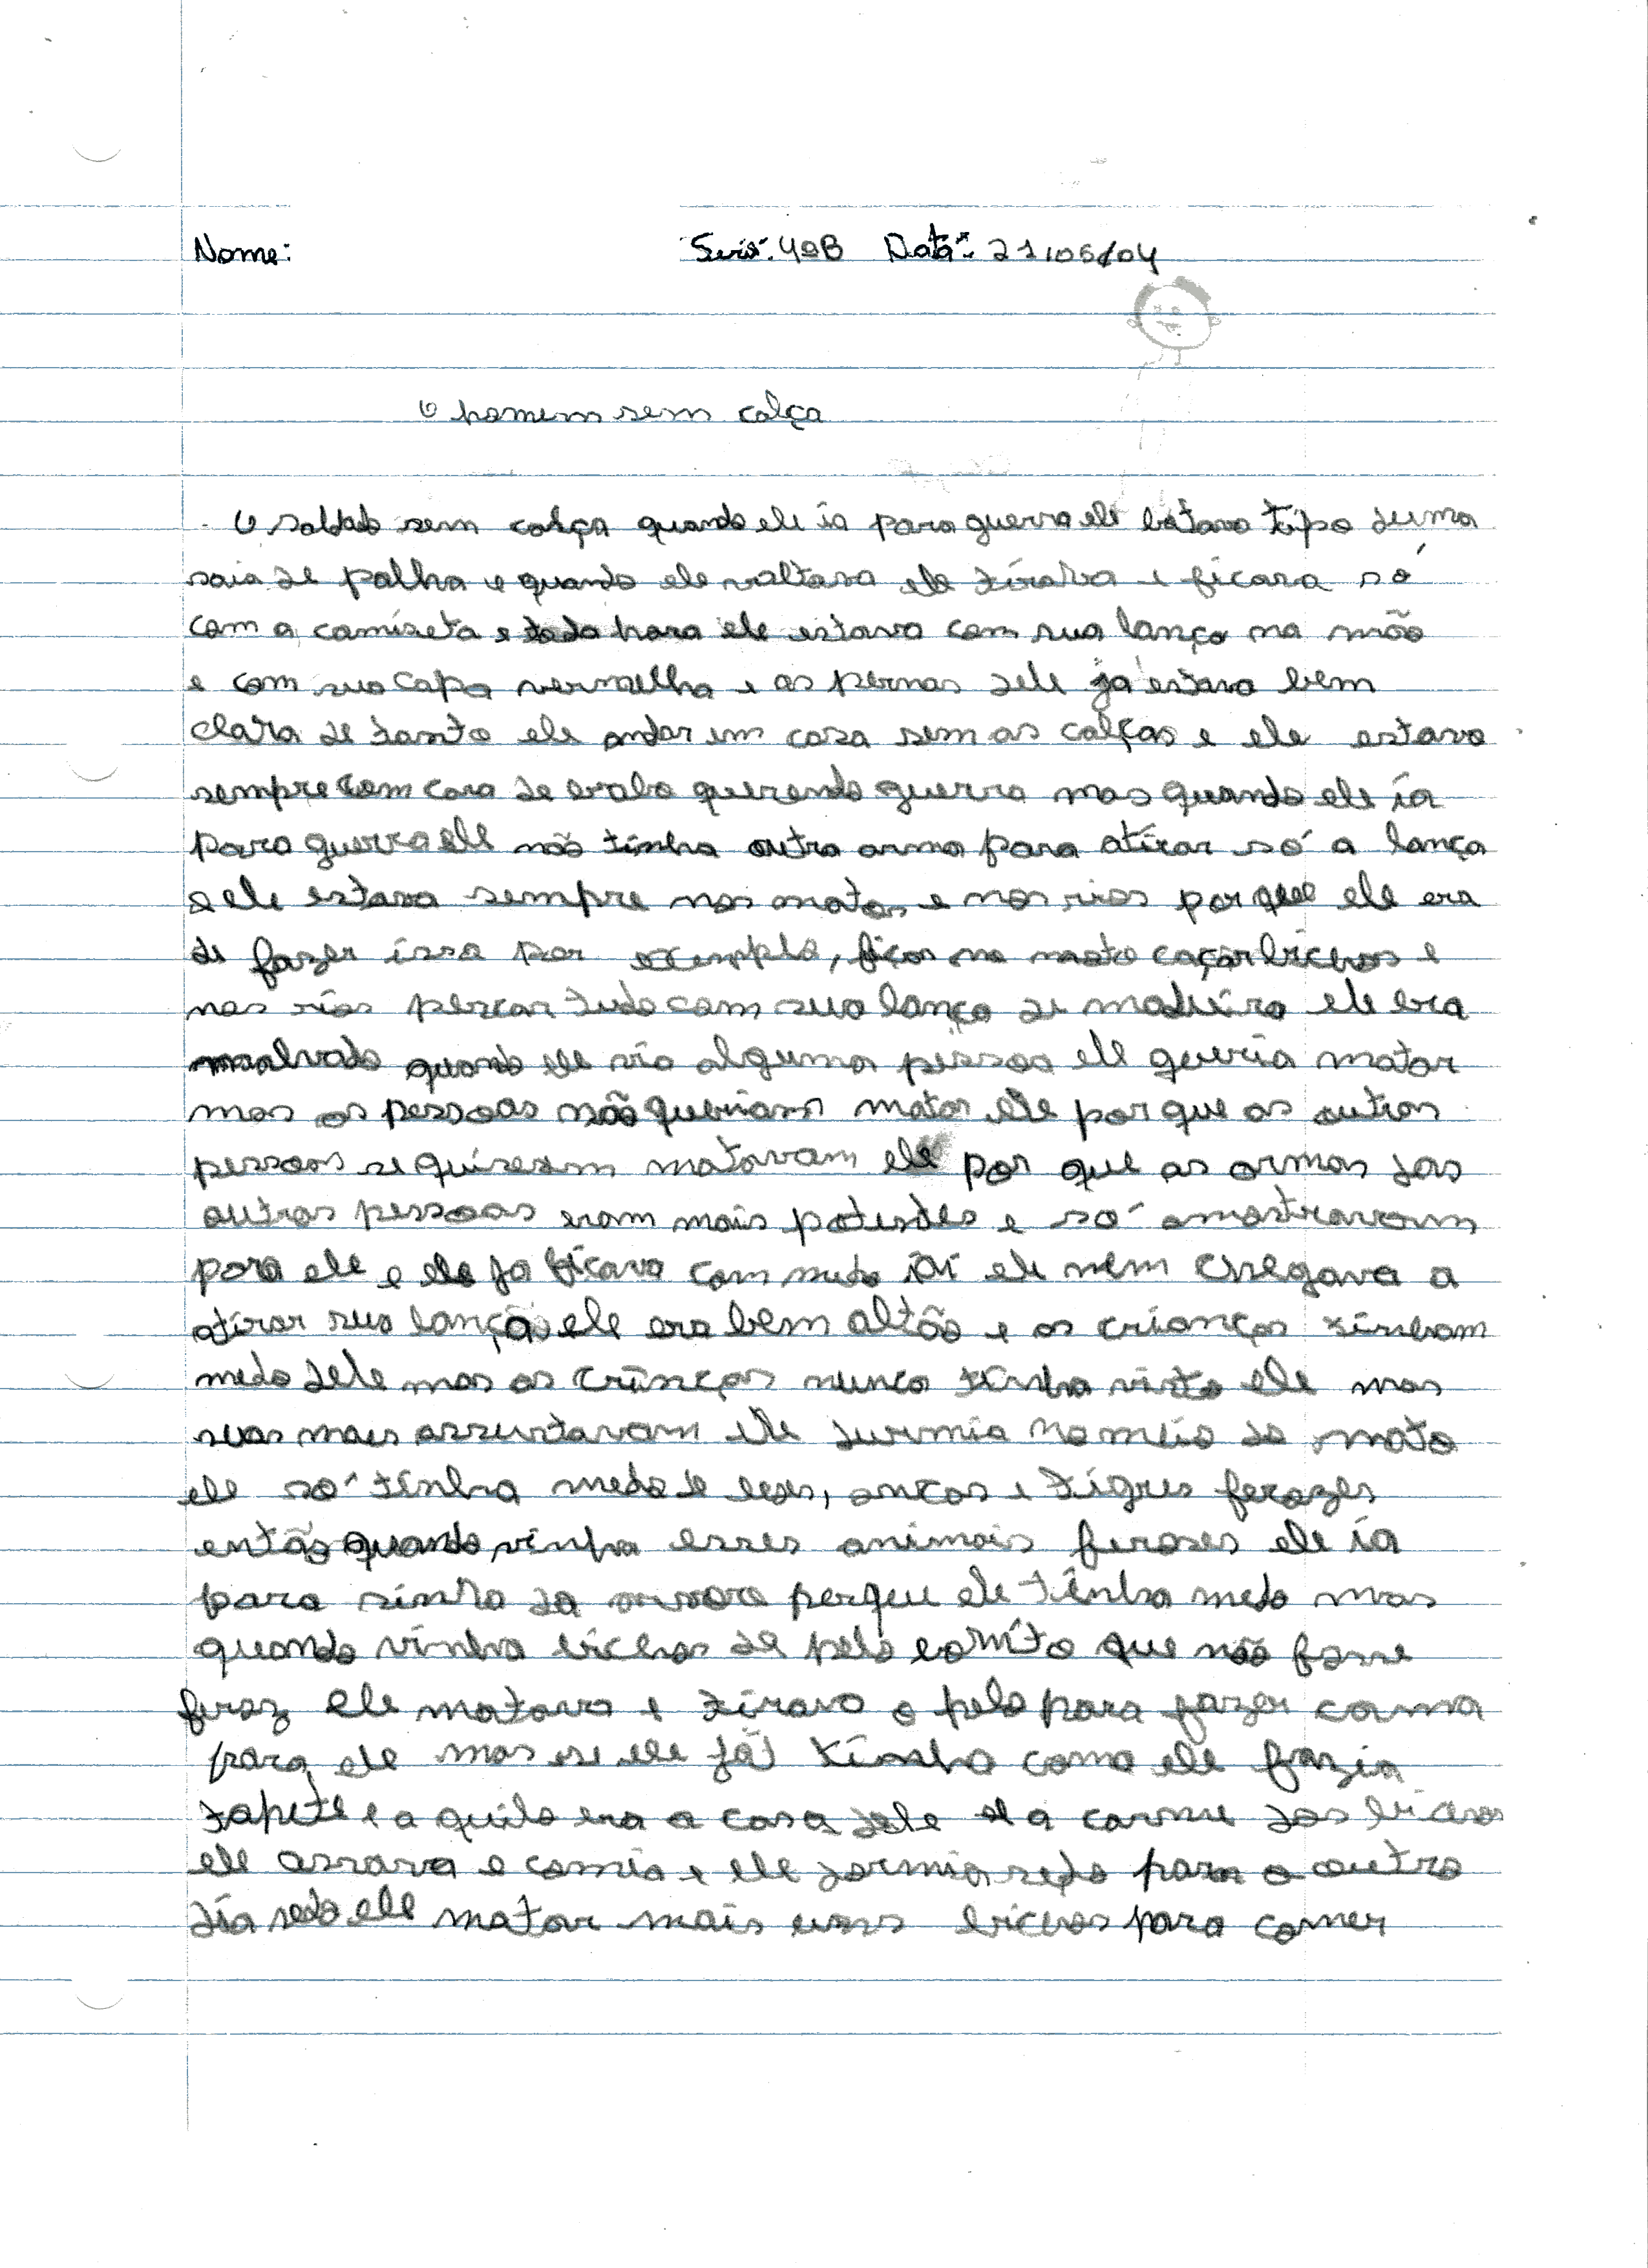 Nome: Serie: 4ªB Data: 21/05/04
O homem sem calça
O soldado sem calça quando ele ia para guerra ele botava tipo duma
saia de palha e quando ele voltava ele tirava e ficava só
com a camiseta e toda hora ele estava com sua lança na mão
e com sua capa vermelha e as pernas dele já estava bem
clara de tanto ele andar em casa sem as calças e ele estava
sempre com cara de brabo querendo guerra mas quando ele ia
para guerra ele não tinha outra arma para atirar só a lança
e ele estava sempre nos matos e nos rios por que ele era
de fazer isso por exemplo, ficar no mato caçar bichos e
nos rios pescar tudo com sua lança de madeira ele era
malvado quando ele via alguma pessoa ele queria matar
mas as pessoas não queriam matar ele por que as outras
pessoas se quisesem matavam ele por que as armas das
outras pessoas eram mais potentes e só amostravam
para ele e ele já ficava com medo ai ele nem chegava a
atirar sua lança ele era bem altão e as crianças tinham
medo dele mas as crianças nunca tinha visto ele mas
suas maes assustavam ele durmia no meio do mato
ele só tinha medo de leoes, onças e tigres ferozes
então quando vinha esses animais feroses ele ia
para sinha da arvore porque ele tinha medo mas
quando vinha bichos de pelo bonito que não fosse
feroz ele matava e tirava o pelo para fazer cama
para ele mas se ele já tinha cama ele fazia
tapete e a quilo era a casa dele e a carne dos bichos
ele assava e comia e ele dormia sedo para o outro
dia sedo ele matar mais uns bichos para comer